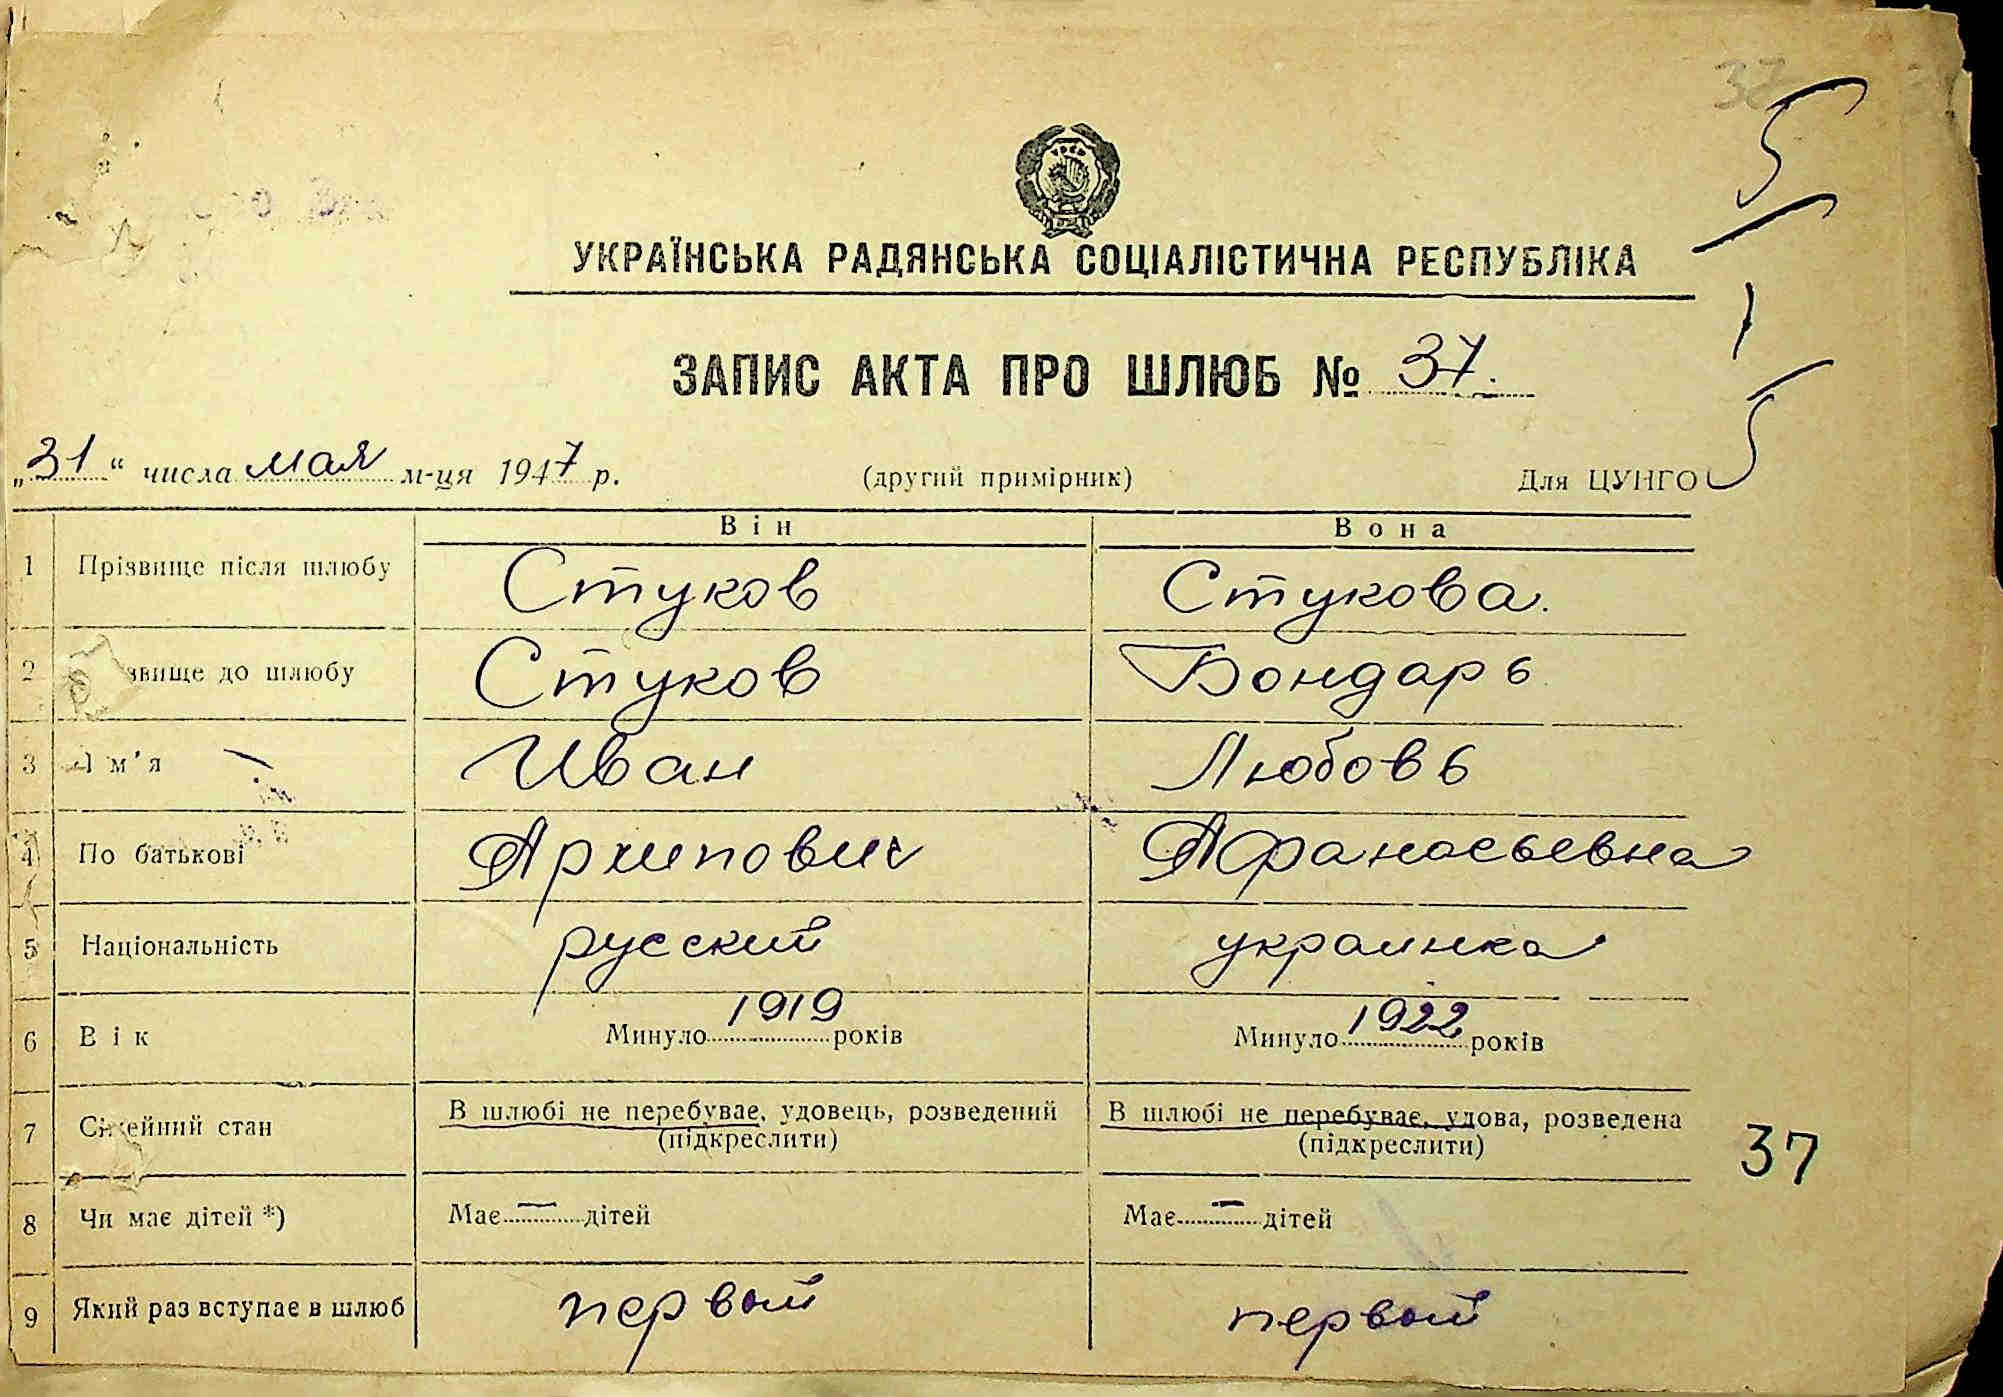 37
5
УКРАЇНСЬКА РАДЯНСЬКА СОЦІАЛІСТИЧНА РЕСПУБЛІКА
ЗАПИС АКТА ПРО ШЛЮБ № 37.
„31“ числа мая м-ця 1947 р. (другий примірник) Для ЦУНГО
5
Він Вона
1 Прізвище після шлюбу Стуков Стукова.
2 звище до шлюбу Стуков Бондарь
3 м'я Иван Любовь
4 По батькові Архипович Афанасьевна
5 Національність русский украинка
6 Вік Минуло 1919 років Минуло 1922 років
7 Сімейний стан В шлюбі не перебуває, удовець, розведений (підкреслити) В шлюбі не перебуває, удова, розведена (підкреслити)
37
8 Чи має дітей *) Має — дітей Має — дітей
9 Який раз вступає в шлюб первый первый